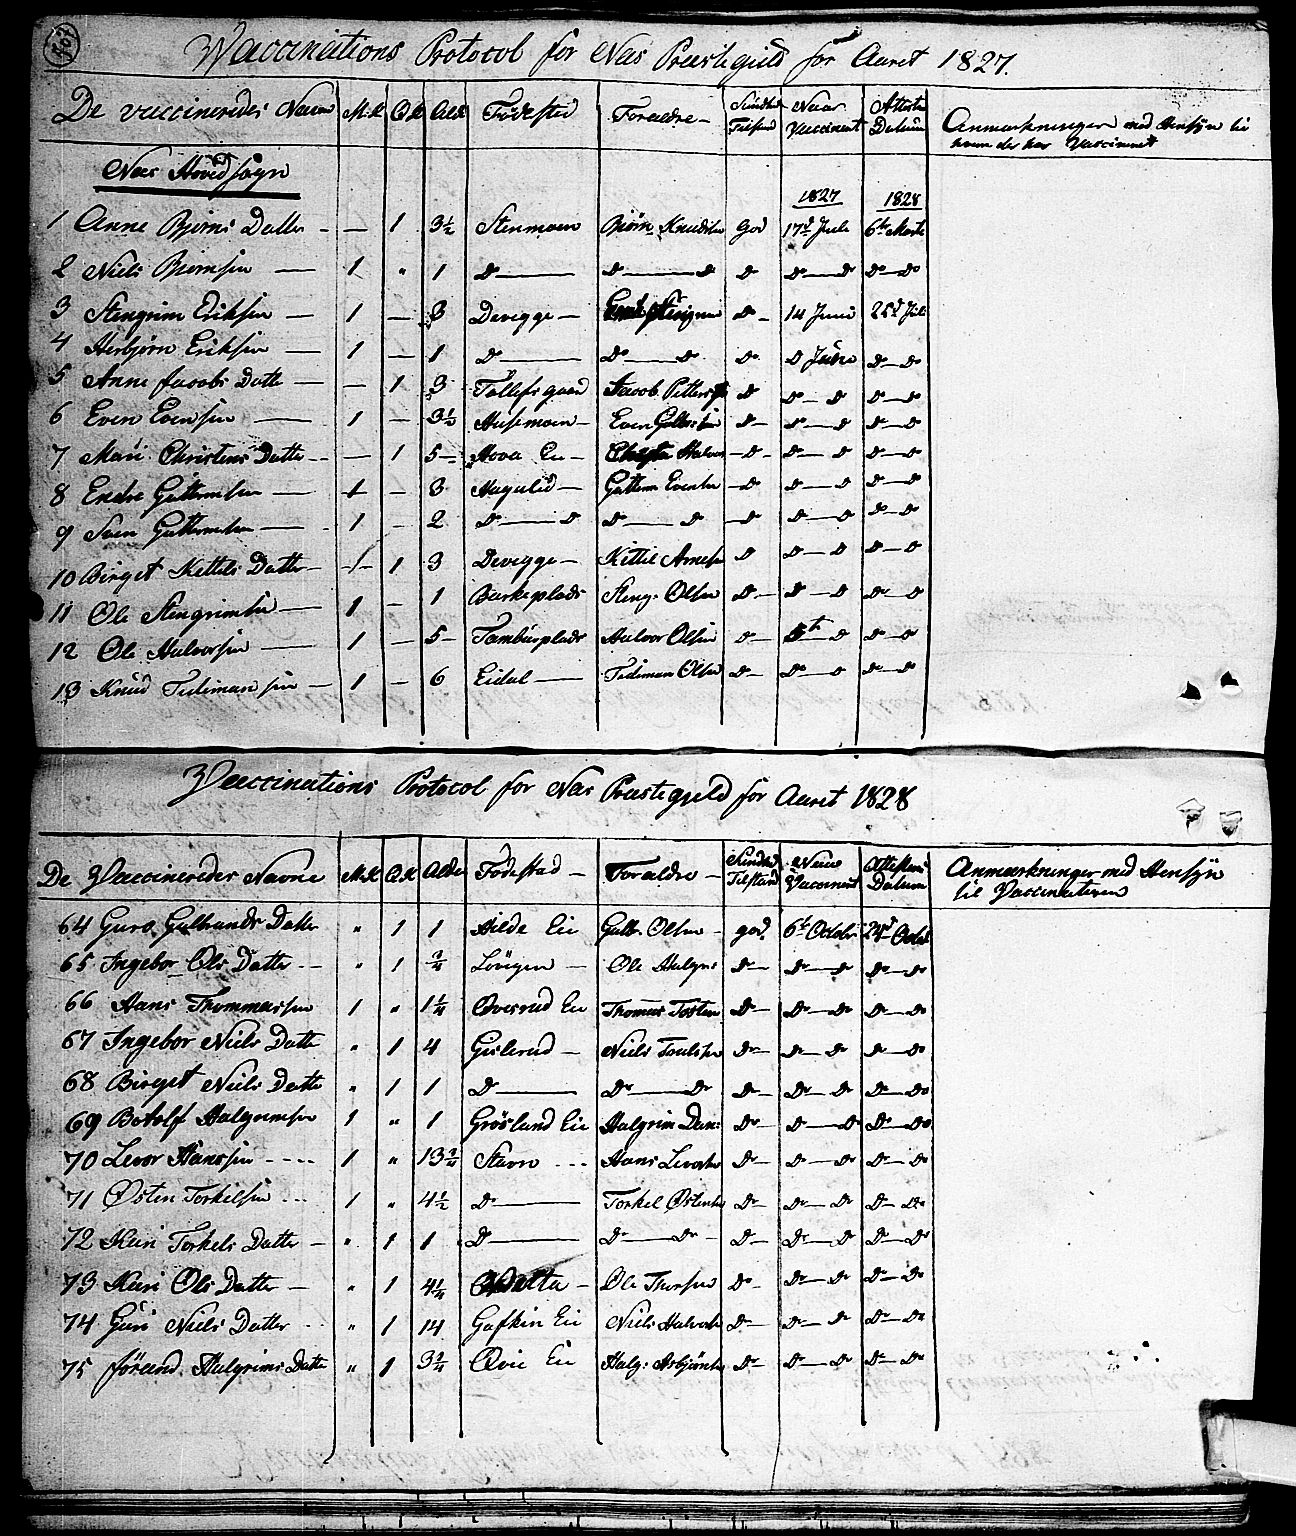 Vaccinations Protocol for Næs Præstegield for Aaret 1827.
De vaccineredes Navne M.K Q.K Alder Fødested Forældre Sundheds Tilstand Naar Vaccineret Attestens Datum Anmærkninger med Hensyn til hvem der har Vaccineret
Næs Hovedsogn
1827 1828
1 Anne Bjørns Datter - — 1 3½ Stenmoen Bjørn Knudsen god 17d Juli 6te Marts
2 Niels Bjørnsen — 1 " 1 do — do — do do do — do do — do
3 Stengrim Eriksen — 1 — 3 Devegge — do - 14 Juni 25d Juli
4 Asbjørn Eriksen — 1 — 1 do — do — do do do Juni do — do
5 Anne Jacobs Datter — — 1 3 Tollefsgaard Jacob Petters do do — do do — do
6 Even Evensen — 1 — 3½ Husemoen — Even Guttormsen do - do — do do — do
7 Mari Christens Datter - — 1 5 — Hova Eie — Halvors — do - do — do do — do
8 Endre Guttormsen — 1 — 3 Hagalid — Guttorm Evensen — do do — do do — do
9 Sven Guttormsen — 1 — 2 do — do do — do — do do — do do — do
10 Birget Kettels Datter - — 1 3 Devegge — Kittil Arnesen do do — do do — do
11 Ole Stengrimsen — 1 — 1 Birkeplads Steng. Olsen do — do — do do — do
12 Ole Halvorsen — 1 — 5 — Tambursplads Halvor Olsen do — 5te do do — do
13 Knud Tidimansen — 1 — 6 Eidal — Tidiman Olsen do — do — do do — do
Vaccinations Protocol for Næs Præstegjeld for Aaret 1828
De Vaccineredes Navne M.K Q.K Alder Fødestad Forældre — Sundheds Tilstand Naar Vaccineret Attestens Datum Anmærkninger med Hensyn til Vaccinateuren
64 Guro Gulbrands Datter " 1 1 Hilde Eie Gulb. Olsen - god. 6te Octobr 24d Octobr
65 Ingebor Ols Datter - - " 1 ¾ Lövigen — Ole Halgrs do — do — do do — do
66 Hans Thommassen 1 " 1¼ Øvesrud Eie Thomas Tosten do — do — do do — do
67 Ingebor Niels Datter " 1 4 Gislerud — Niels Troulsen do — do — do do — do
68 Birget Niels Datter " 1 1 do — do — do do — do — do do — do
69 Botolf Halgrimsen 1 " 1 Gröslund Eie Halgrim Dan: do — do — do do — do
70 Levor Hanssen - - - - 1 " 13¾ Stavn - - - Hans Levorsen do — do — do do — do
71 Østen Torkelsen - - - 1 " 4½ do — Torkel Østensen do — do — do do — do
72 Kari Torkels Datter — " 1 1 do — do — do - do — do — do do — do
73 Kari Ols Datter — " 1 4¼ Ole Thorsen do - do — do do — do
74 Guri Niels Datter - - " 1 14 Gafkin Eie Niels Halvorsen do — do — do do — do
75 Jörand Halgrims Datter " 1 3¼ Qvie Eie Halg: Asbjörnsen do — do — do do — do